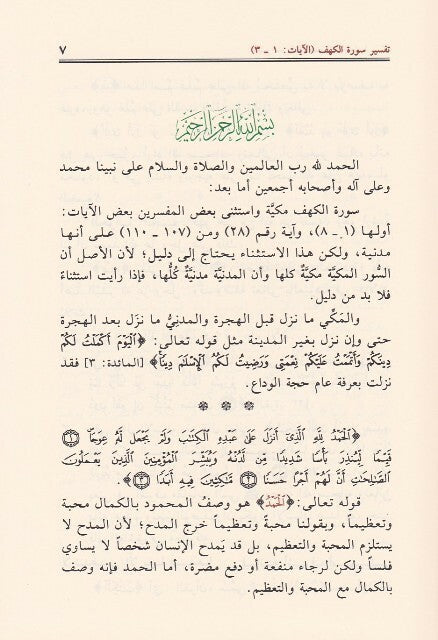 تفسير سورة الكهف (الآيات: ١ ـ ٣)
٧
بسم الله الرحمن الرحيم
الحمد لله رب العالمين والصلاة والسلام على نبينا محمد
وعلى آله وأصحابه أجمعين أما بعد:
سورة الكهف مكيَّة واستثنى بعض المفسرين بعض الآيات:
أولها (١ ـ ٨)، وآية رقم (٢٨) ومن (١٠٧ ـ ١١٠) على أنها
مدنية، ولكن هذا الاستثناء يحتاج إلى دليل؛ لأن الأصل أن
السُّور المكيَّة مكيَّةٌ كلها وأن المدنيَّة مدنيَّةٌ كُلُّها، فإذا رأيت استثناءً
فلا بد من دليل.
والمَكِّي ما نزل قبل الهجرة والمدنِيُّ ما نزل بعد الهجرة
حتى وإن نزل بغير المدينة مثل قوله تعالى: ﴿اَلْيَوْمَ أَكْمَلْتُ لَكُمْ
دِينَكُمْ وَأَتْمَمْتُ عَلَيْكُمْ نِعْمَتِي وَرَضِيتُ لَكُمُ الْإِسْلَامَ دِينًا﴾ [المائدة: ٣] فقد
نزلت بعرفة عام حجة الوداع.
* * *
﴿الْحَمْدُ لِلَّهِ الَّذِي أَنزَلَ عَلَىٰ عَبْدِهِ الْكِتَابَ وَلَمْ يَجْعَل لَّهُ عِوَجًا ۝١
قَيِّمًا لِّيُنذِرَ بَأْسًا شَدِيدًا مِّن لَّدُنْهُ وَيُبَشِّرَ الْمُؤْمِنِينَ الَّذِينَ يَعْمَلُونَ
الصَّالِحَاتِ أَنَّ لَهُمْ أَجْرًا حَسَنًا ۝٢ مَّاكِثِينَ فِيهِ أَبَدًا ۝٣﴾.
قوله تعالى: ﴿الْحَمْدُ﴾ هو وصفُ المحمود بالكمال محبة
وتعظيماً، وبقولنا محبةً وتعظيماً خرج المدح؛ لأن المدح لا
يستلزم المحبة والتعظيم، بل قد يَمدح الإنسان شخصاً لا يساوي
فلساً ولكن لرجاء منفعة أو دفع مضرة، أما الحمد فإنه وصف
بالكمال مع المحبة والتعظيم.